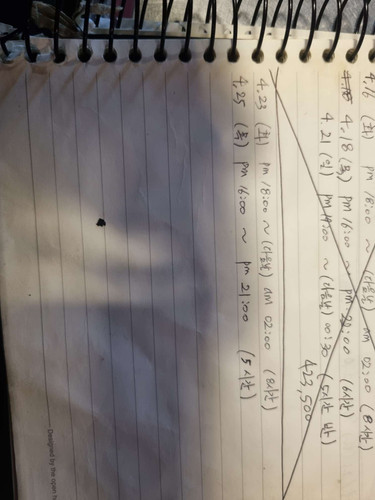 4.16 (화) pm 18:00 ~ (다음날) am 02:00 (8시간)
4.18 (목) pm 16:00 ~ pm 22:00 (6시간)
4.21 (일) pm 19:00 ~ (다음날) 00:30 (5시간 반)
423,500
4.23 (화) pm 18:00 ~ (다음날) am 02:00 (8시간)
4.25 (목) pm 16:00 ~ pm 21:00 (5시간)
Designed by the open